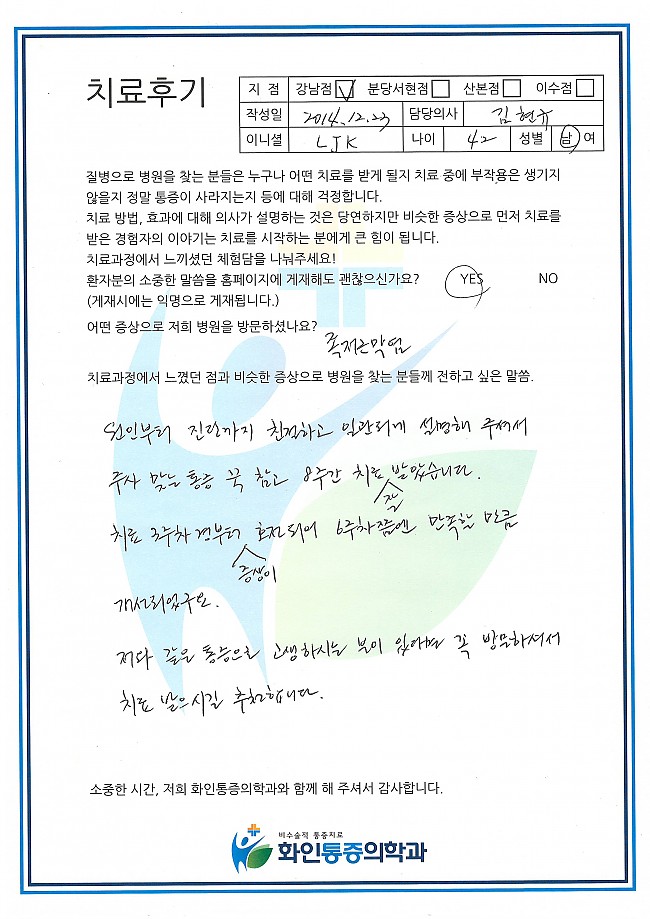 치료후기
지 점 강남점 ☑ 분당서현점 □ 산본점 □ 이수점 □
작성일 2014.12.23 담당의사 김현규
이니셜 LJK 나이 42 성별 남 여
질병으로 병원을 찾는 분들은 누구나 어떤 치료를 받게 될지 치료 중에 부작용은 생기지
않을지 정말 통증이 사라지는지 등에 대해 걱정합니다.
치료 방법, 효과에 대해 의사가 설명하는 것은 당연하지만 비슷한 증상으로 먼저 치료를
받은 경험자의 이야기는 치료를 시작하는 분에게 큰 힘이 됩니다.
치료과정에서 느끼셨던 체험담을 나눠주세요!
환자분의 소중한 말씀을 홈페이지에 게재해도 괜찮으신가요? YES NO
(게재시에는 익명으로 게재됩니다.)
어떤 증상으로 저희 병원을 방문하셨나요?
족저근막염
치료과정에서 느꼈던 점과 비슷한 증상으로 병원을 찾는 분들께 전하고 싶은 말씀.
원인부터 진단까지 친절하고 일관되게 설명해 주셔서
주사 맞는 통증 꾹 참고 8주간 치료 잘 받았습니다.
치료 3주차 경부터 증상이 호전되어 6주차쯤엔 만족할 만큼
개선되었구요.
저와 같은 통증으로 고생하시는 분이 있으면 꼭 방문하셔서
치료 받으시길 추천합니다.
소중한 시간, 저희 화인통증의학과와 함께 해 주셔서 감사합니다.
비수술적 통증치료
화인통증의학과